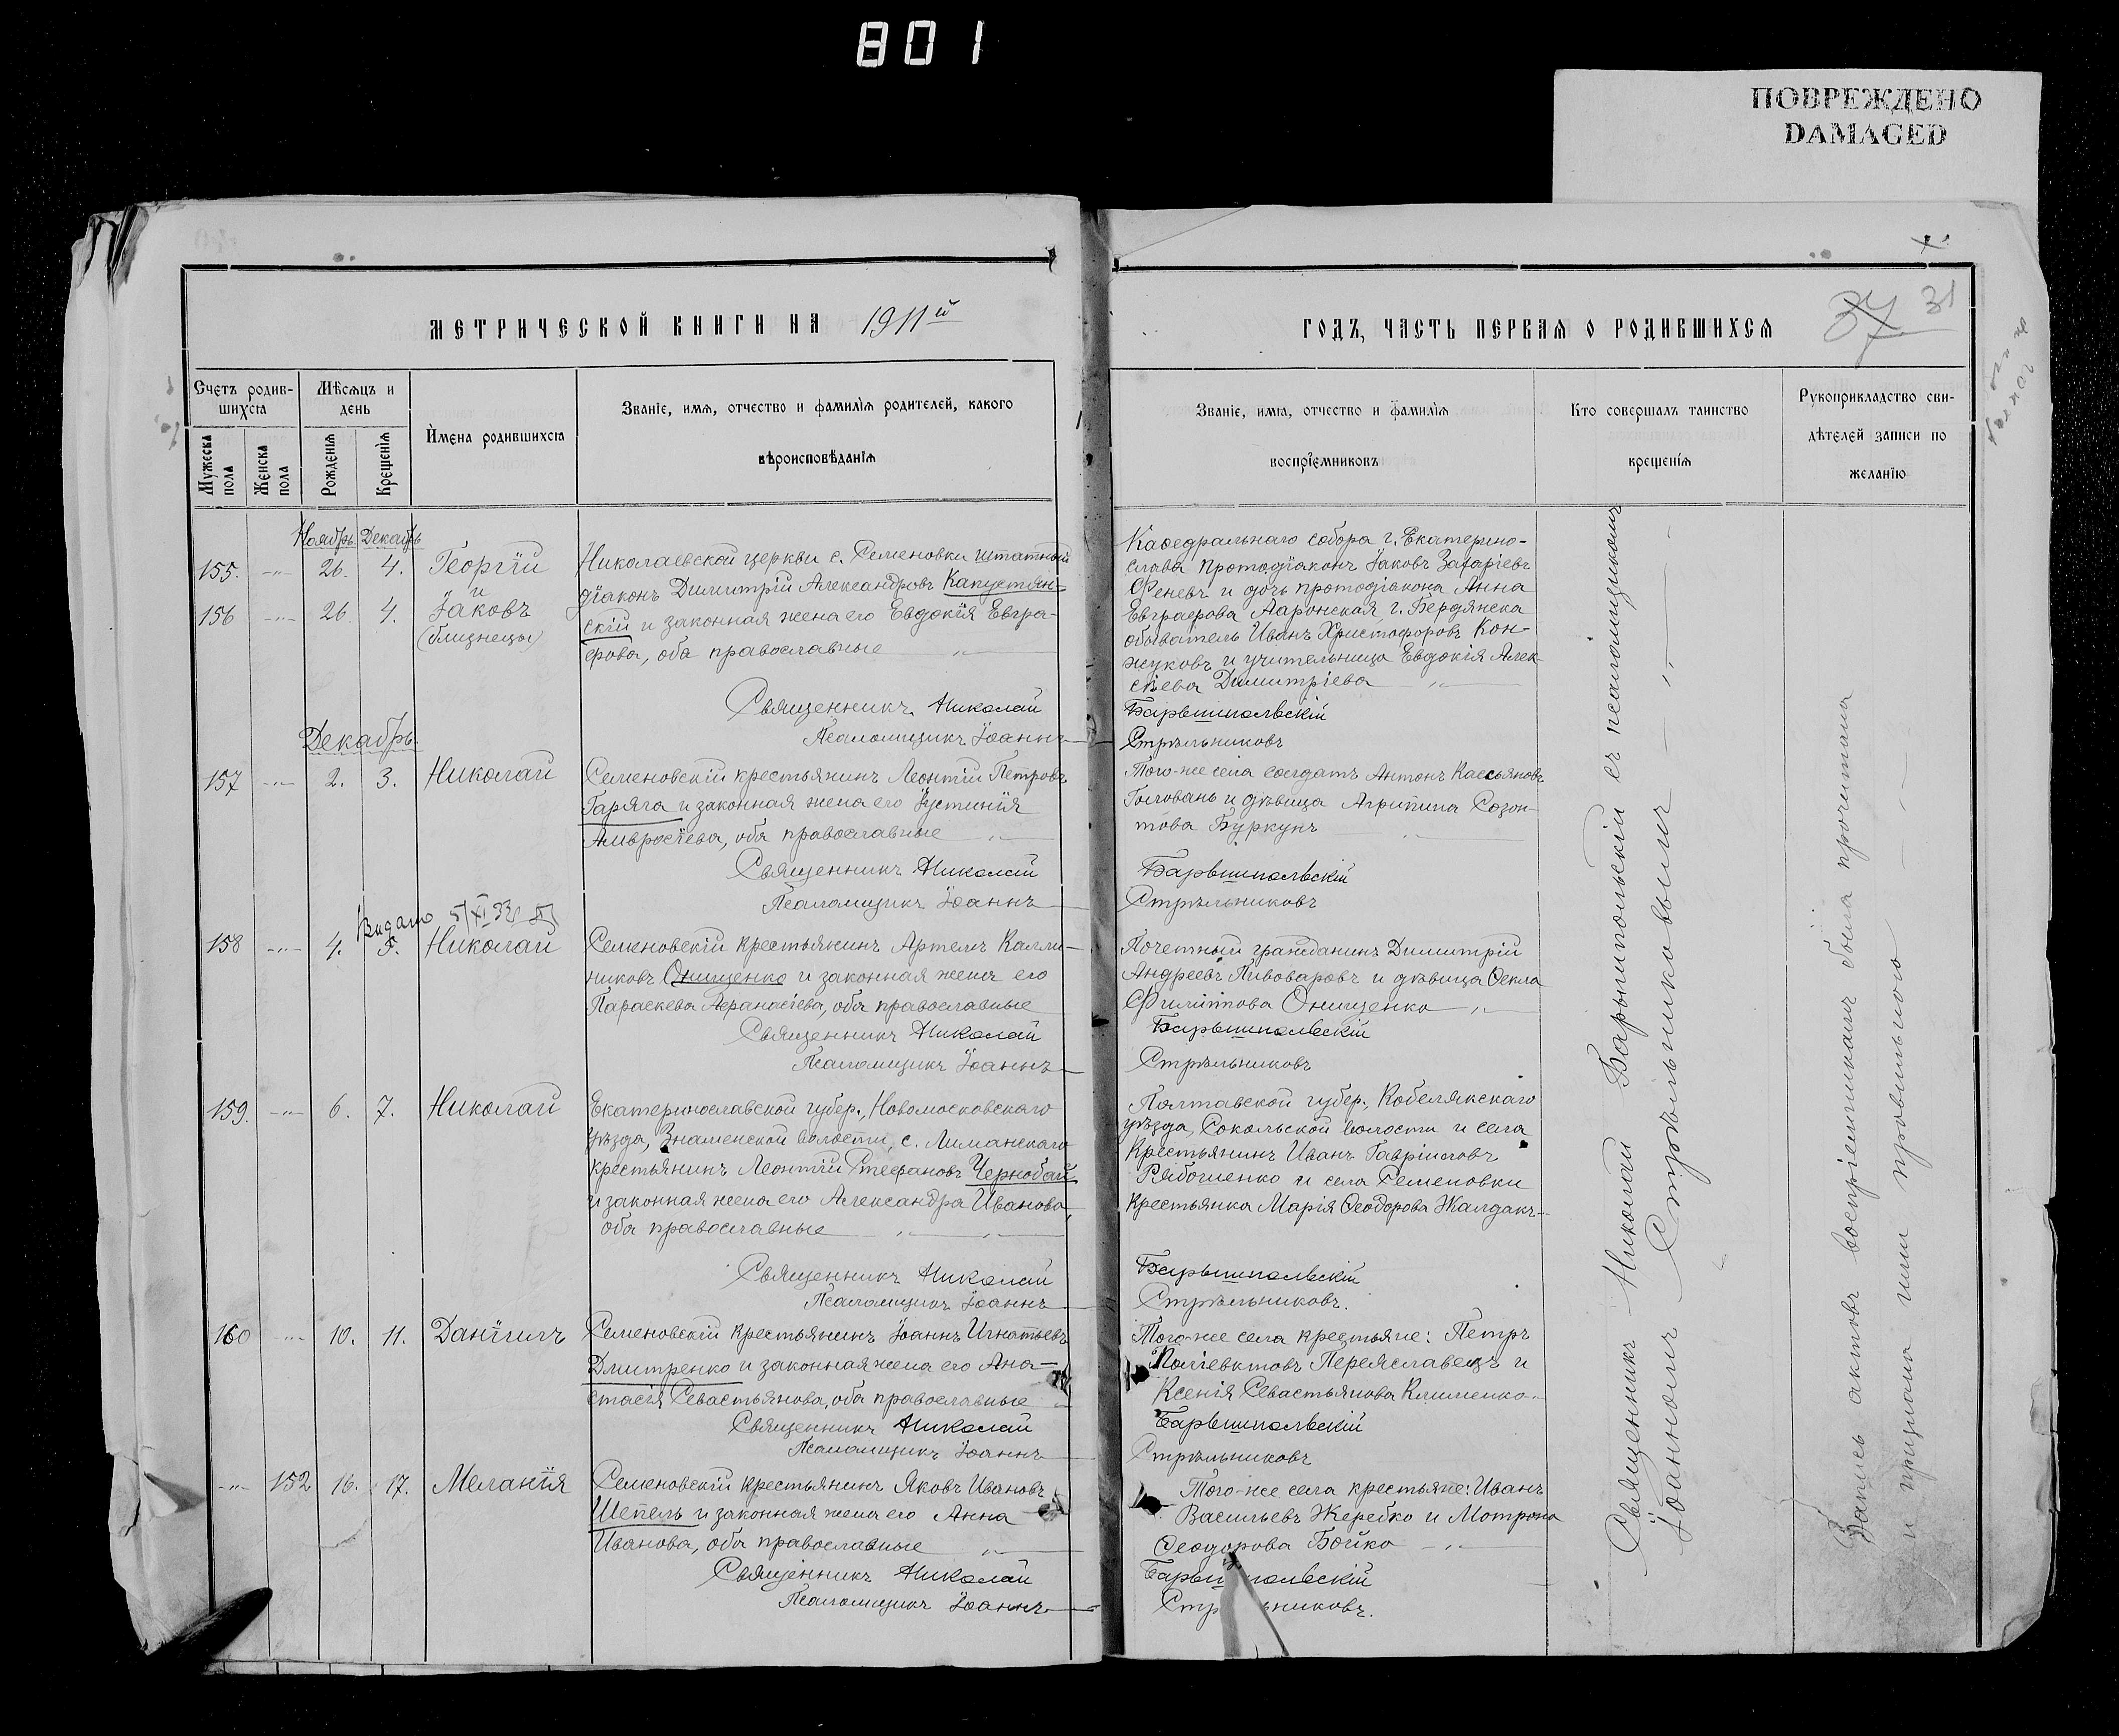 801
ПОВРЕЖДЕНО
DAMAGED
МЕТРИЧЕСКОЙ КНИГИ НА 1911й
Счетъ родив-
шихся
Мѣсяцъ и
день
Имена родившихся
Званіе, имя, отчество и фамилія родителей, какого
вѣроисповѣданія
Мужеска
пола
Женска
пола
Рожденія
Крещенія
Ноябрь. Декабрь
155. -"- 26. 4. Георгій
и
156 -"- 26. 4. Іаковъ
(близнецы)
Николаевской церкви с. Семеновки штатный
діаконъ Димитрій Александровъ Капустян-
скій и законная жена его Евдокія Евгра-
фова, оба православные
Священникъ Николай
Псаломщикъ Іоаннъ
Декабрь.
157 -"- 2. 3. Николай
Семеновскій крестьянинъ Леонтій Петровъ
Гаряга и законная жена его Іустинія
Амвросіева, оба православные
Священникъ Николай
Псаломщикъ Іоаннъ
Видано 5/XI 32
158 -"- 4. 5. Николай
Семеновскій крестьянинъ Артемъ Калли-
никовъ Онищенко и законная жена его
Параскева Афанасіева, оба православные
Священникъ Николай
Псаломщикъ Іоаннъ
159. -"- 6. 7. Николай
Екатеринославской губер., Новомосковскаго
уѣзда, Знаменской волости, с. Лиманскаго
крестьянинъ Леонтій Стефановъ Чернобай
и законная жена его Александра Иванова,
оба православные
Священникъ Николай
Псаломщикъ Іоаннъ
160 -"- 10. 11. Даніилъ
Семеновскій крестьянинъ Іоаннъ Игнатьевъ
Дмитренко и законная жена его Ана-
стасія Севастьянова, оба православные
Священникъ Николай
Псаломщикъ Іоаннъ
-"- 152 16. 17. Меланія
Семеновскій крестьянинъ Яковъ Ивановъ
Шепель и законная жена его Анна
Иванова, оба православные
Священникъ Николай
Псаломщикъ Іоаннъ
ГОДЪ, ЧАСТЬ ПЕРВАЯ О РОДИВШИХСЯ
37 31
Званіе, имя, отчество и фамилія
воспріемниковъ
Кто совершалъ таинство
крещенія
Рукоприкладство сви-
дѣтелей записи по
желанію
Каѳедральнаго собора г. Екатерино-
слава протодіаконъ Іаковъ Захаріевъ
Феневъ и дочь протодіакона Анна
Евграфова Ааронская, г. Бердянска
обыватель Иванъ Христофоровъ Кон-
жуковъ и учительница Евдокія Алек-
сѣева Димитріева
Барышпольскій
Стрѣльниковъ
Того-же села солдатъ Антонъ Кассьяновъ
Головань и дѣвица Агрипина Созон-
това Буркунъ
Барышпольскій
Стрѣльниковъ
Почетный гражданинъ Димитрій
Андреевъ Пивоваровъ и дѣвица Ѳекла
Филиппова Онищенко
Барышпольскій
Стрѣльниковъ
Полтавской губер., Кобелякскаго
уѣзда, Сокольской волости и села
крестьянинъ Иванъ Гавріиловъ
Рябошенко и села Семеновки
крестьянка Марія Ѳеодорова Жалдакъ
Барышпольскій
Стрѣльниковъ.
Того-же села крестьяне: Петръ
Поліевктовъ Переяславецъ и
Ксенія Севастьянова Клименко
Барышпольскій
Стрѣльниковъ
Того-же села крестьяне: Иванъ
Васильевъ Жеребко и Мотрона
Ѳеодорова Бойко
Барышпольскій
Стрѣльниковъ.
Священникъ Николай Барышпольскій съ псаломщикомъ
Іоанномъ Стрѣльниковымъ
Запись актовъ воспріемникамъ была прочитана
и признана ими правильною